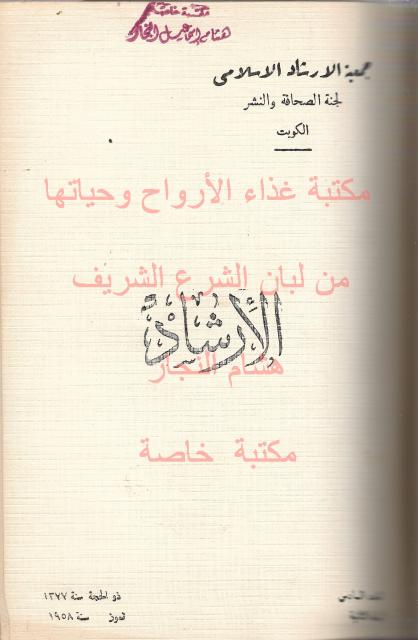 مكتبة خاصة
هشام إسماعيل النجار
جمعية الارشاد الاسلامى
لجنة الصحافة والنشر
الكويت
مكتبة غذاء الأرواح وحياتها
من لبان الشرع الشريف
الأرشاد
هشام النجار
مكتبة خاصة
ذو الحجة سنة ١٣٧٧
تموز سنة ١٩٥٨